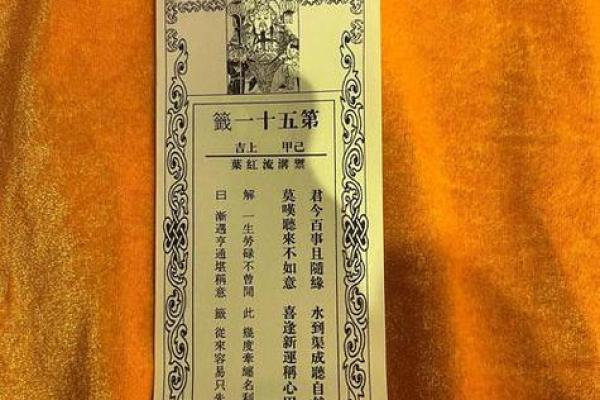 第五十一籤
己甲 上吉
禦溝流紅葉
君今百事且隨緣 水到渠成聽自
莫嘆聽來不如意 喜逢新運稱心
解 一生勞碌不曾閒 此 幾度牽纏名利
曰 漸遇亨通堪稱意 籤 從來容易只